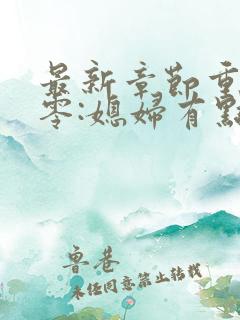 最新章節重
零:媳婦有點
魯巷
未經同意禁止轉載